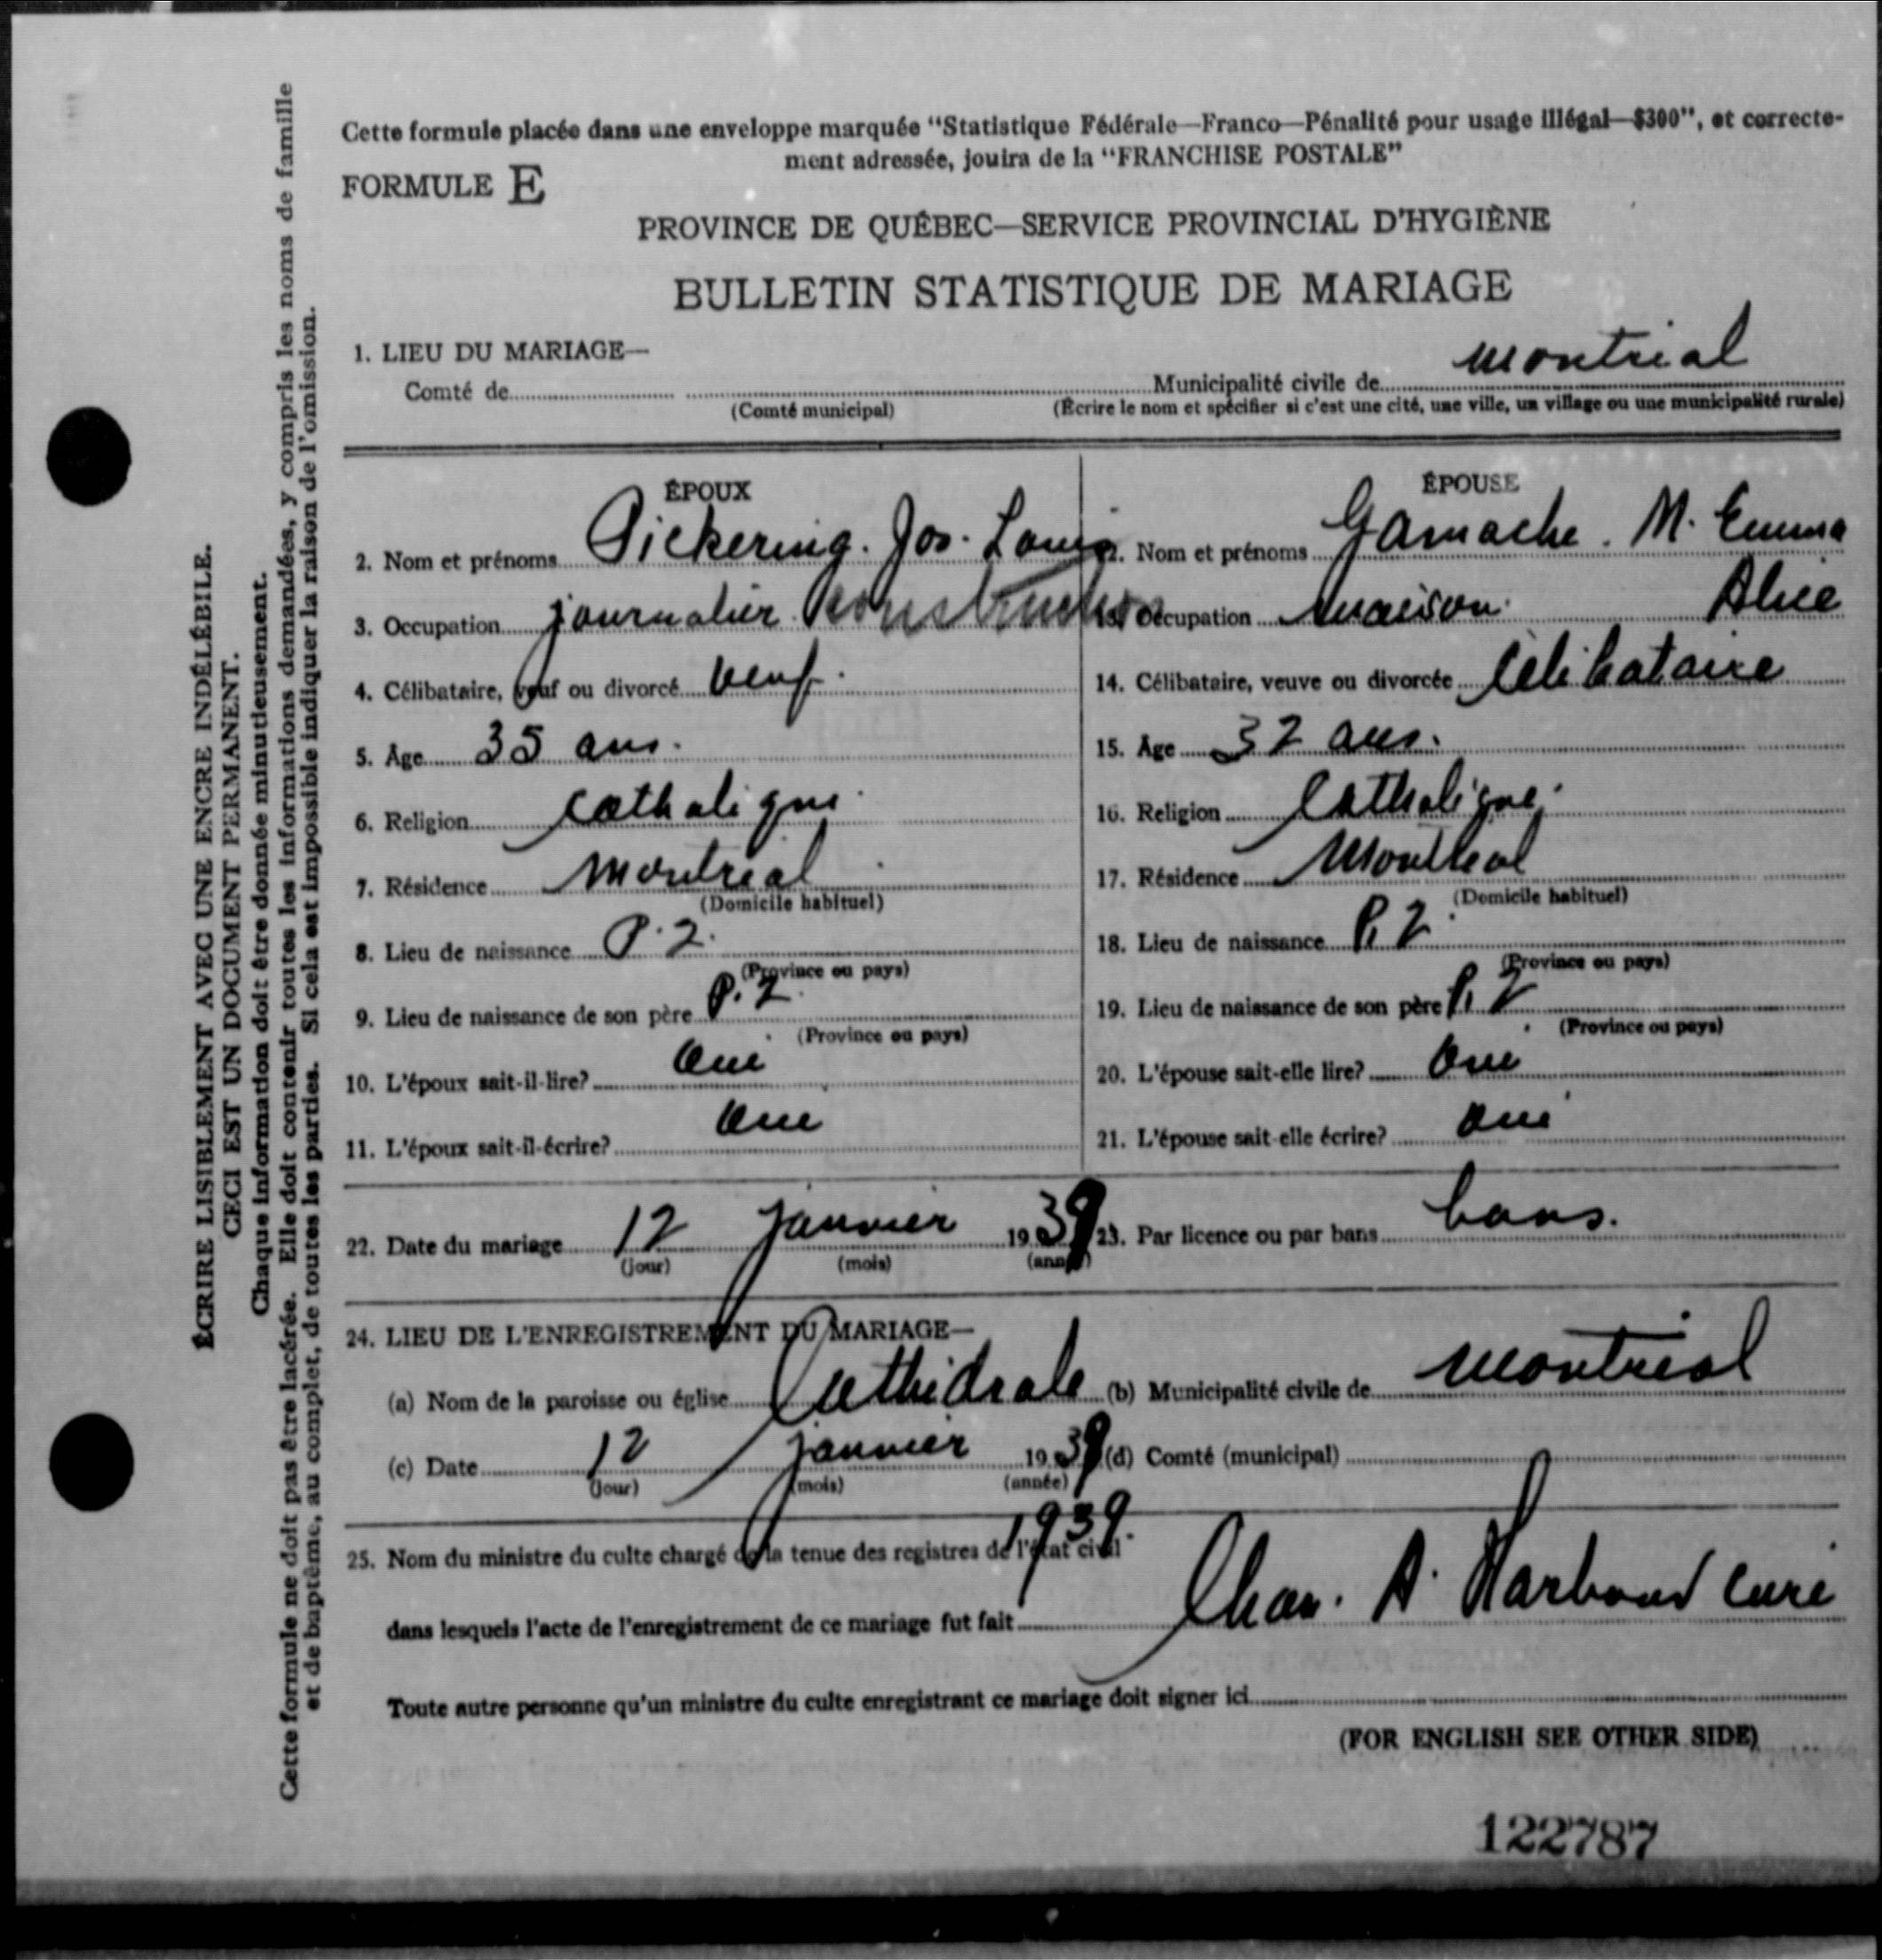 Cette formule placée dans une enveloppe marquée "Statistique Fédérale—Franco—Pénalité pour usage illégal—$300", et correcte-
ment adressée, jouira de la "FRANCHISE POSTALE"
FORMULE E
PROVINCE DE QUÉBEC—SERVICE PROVINCIAL D'HYGIÈNE
BULLETIN STATISTIQUE DE MARIAGE
1. LIEU DU MARIAGE—
Comté de Municipalité civile de Montréal
(Comté municipal) (Écrire le nom et spécifier si c'est une cité, une ville, un village ou une municipalité rurale)
ÉPOUX
2. Nom et prénoms Pickering. Jos. Louis
3. Occupation journalier Construction
4. Célibataire, veuf ou divorcé veuf.
5. Âge 35 ans.
6. Religion catholique
7. Résidence Montréal
(Domicile habituel)
8. Lieu de naissance P. Q.
(Province ou pays)
9. Lieu de naissance de son père P. Q.
(Province ou pays)
10. L'époux sait-il-lire? Oui
11. L'époux sait-il-écrire? Oui
ÉPOUSE
12. Nom et prénoms Gamache. M. Emma
Alice
13. Occupation Maison
14. Célibataire, veuve ou divorcée Célibataire
15. Âge 32 ans.
16. Religion Catholique
17. Résidence Montréal
(Domicile habituel)
18. Lieu de naissance P. Q.
(Province ou pays)
19. Lieu de naissance de son père P. Q.
(Province ou pays)
20. L'épouse sait-elle lire? Oui
21. L'épouse sait-elle écrire? Oui
22. Date du mariage 12 janvier 1939 23. Par licence ou par bans bans.
(jour) (mois) (année)
24. LIEU DE L'ENREGISTREMENT DU MARIAGE—
(a) Nom de la paroisse ou église Cathédrale (b) Municipalité civile de Montréal
(c) Date 12 janvier 1939 (d) Comté (municipal)
(jour) (mois) (année)
1939.
25. Nom du ministre du culte chargé de la tenue des registres de l'état civil
dans lesquels l'acte de l'enregistrement de ce mariage fut fait Chan. A. Harbour curé
Toute autre personne qu'un ministre du culte enregistrant ce mariage doit signer ici
(FOR ENGLISH SEE OTHER SIDE)
122787
ÉCRIRE LISIBLEMENT AVEC UNE ENCRE INDÉLÉBILE.
CECI EST UN DOCUMENT PERMANENT.
Chaque information doit être donnée minutieusement.
Cette formule ne doit pas être lacérée. Elle doit contenir toutes les informations demandées, y compris les noms de famille
et de baptême, au complet, de toutes les parties. Si cela est impossible indiquer la raison de l'omission.